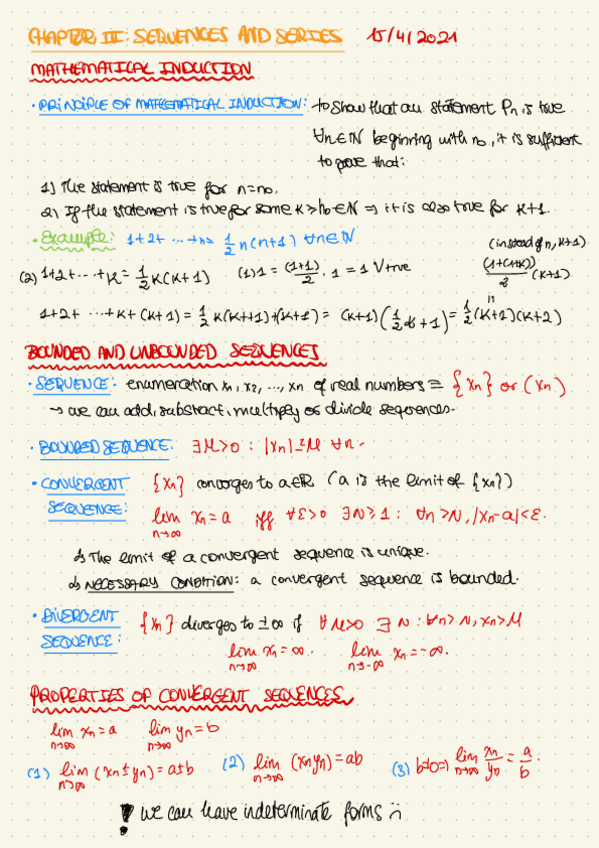 CHAPTER III: SEQUENCES AND SERIES 15/4/2021
MATHEMATICAL INDUCTION
• PRINCIPLE OF MATHEMATICAL INDUCTION: to show that an statement Pn is true
∀n∈ℕ beginning with n₀, it is sufficient
to prove that:
1) The statement is true for n=n₀.
2) If the statement is true for some k>n₀∈ℕ ⇒ it is also true for k+1.
• Example: 1+2+ ... +n = 1/2 n(n+1) ∀n∈ℕ (instead of n, k+1)
(2) 1+2+ ... +k = 1/2 k(k+1) (1) 1 = (1+1)/2, 1 = 1 Vtrue (1+(1+k))/2 (k+1)
1+2+ ... +k+(k+1) = 1/2 k(k+1)+(k+1) = (k+1)(1/2 k+1) = 1/2 (k+1)(k+2)
BOUNDED AND UNBOUNDED SEQUENCES
• SEQUENCE: enumeration x₁, x₂, ..., xn of real numbers ≡ {xn} or (xn)
→ we can add, substract, multipy or divide sequences.
• BOUNDED SEQUENCE: ∃M>0 : |xn|≤M ∀n.
• CONVERGENT {xn} converges to a∈ℝ (a is the limit of {xn})
SEQUENCE: lim n→∞ xn = a iff ∀ε>0 ∃N≥1 : ∀n>N, |xn-a|<ε.
↳ The limit of a convergent sequence is unique.
↳ NECESSARY CONDITION: a convergent sequence is bounded.
• DIVERGENT {xn} diverges to ±∞ if ∀M>0 ∃N : ∀n>N, xn>M
SEQUENCE: lim n→∞ xn = ∞. lim n→-∞ xn = -∞.
PROPERTIES OF CONVERGENT SEQUENCES
lim n→∞ xn = a lim n→∞ yn = b
(1) lim n→∞ (xn±yn) = a±b (2) lim n→∞ (xnyn) = ab (3) b≠0 ⇒ lim n→∞ xn/yn = a/b.
! we can have indeterminate forms :(